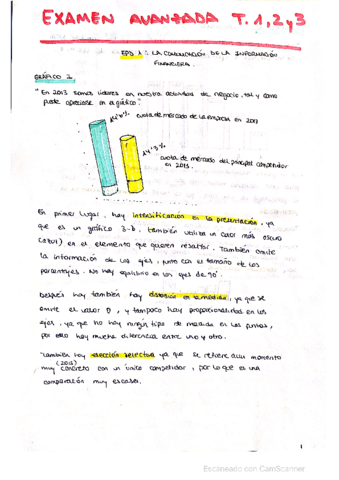 EXAMEN AVANZADA T. 1, 2 y 3
EPD 1: LA COMUNICACIÓN DE LA INFORMACIÓN
FINANCIERA.
GRÁFICO 1
"En 2013 somos líderes en nuestra actividad de negocio, tal y como
puede apreciarse en el gráfico".
14'4% cuota de mercado de la empresa en 2013
14'3%
cuota de mercado del principal competidor
en 2013.
En primer lugar, hay intensificación en la presentación, ya
que es un gráfico 3-D. También utiliza un color más oscuro
(azul) en el elemento que quieren resaltar. También omite
la información de los ejes, junto con el tamaño de los
porcentajes. No hay equilibrio en los ejes de 90°.
Después hay también hay distorsión en la medida, ya que se
omite el valor 0, y tampoco hay proporcionalidad en los
ejes, ya que no hay ningún tipo de medida en los puntos,
por ello hay mucha diferencia entre uno y otro.
También hay elección selectiva ya que se refiere a un momento
(2013)
muy concreto con un único competidor, por lo que es una
comparación muy escasa.
1
Escaneado con CamScanner